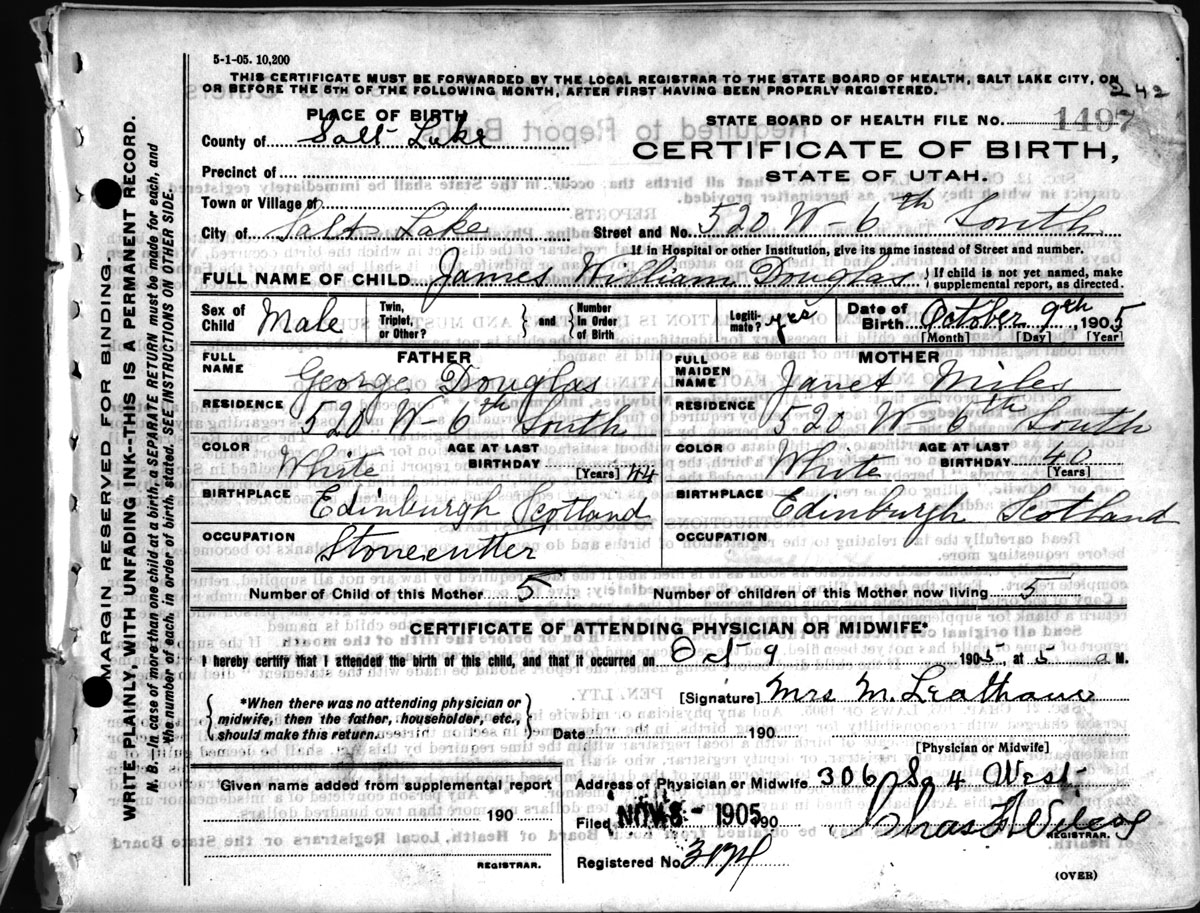 5-1-05. 10,200
THIS CERTIFICATE MUST BE FORWARDED BY THE LOCAL REGISTRAR TO THE STATE BOARD OF HEALTH, SALT LAKE CITY, ON
OR BEFORE THE 5TH OF THE FOLLOWING MONTH, AFTER FIRST HAVING BEEN PROPERLY REGISTERED.
242
PLACE OF BIRTH
STATE BOARD OF HEALTH FILE NO. 1497
County of Salt Lake
CERTIFICATE OF BIRTH,
Precinct of
STATE OF UTAH.
Town or Village of
City of Salt Lake Street and No. 520 W-6th South
If in Hospital or other Institution, give its name instead of Street and number.
FULL NAME OF CHILD James William Douglas { If child is not yet named, make supplemental report, as directed.
Sex of Child Male Twin, Triplet, or Other? } and { Number in Order of Birth Legitimate? yes Date of Birth October 9th, 1905
[Month] [Day] [Year]
FATHER MOTHER
FULL NAME George Douglas FULL MAIDEN NAME Janet Miles
RESIDENCE 520 W-6th South RESIDENCE 520 W 6th South
COLOR White AGE AT LAST BIRTHDAY 44 [Years] COLOR White AGE AT LAST BIRTHDAY 40 [Years]
BIRTHPLACE Edinburgh Scotland BIRTHPLACE Edinburgh Scotland
OCCUPATION Stonecutter OCCUPATION
Number of Child of this Mother 5 Number of children of this Mother now living 5
CERTIFICATE OF ATTENDING PHYSICIAN OR MIDWIFE*
I hereby certify that I attended the birth of this child, and that it occurred on Oct 9 1905, at 5 a M.
*When there was no attending physician or
midwife, then the father, householder, etc.,
should make this return.
[Signature] Mrs M.
Date 190
[Physician or Midwife]
Given name added from supplemental report
190
REGISTRAR.
Address of Physician or Midwife 306 So 4 West
Filed NOV 8 - 1905 190
REGISTRAR.
Registered No.
(OVER)
MARGIN RESERVED FOR BINDING.
WRITE PLAINLY, WITH UNFADING INK--THIS IS A PERMANENT RECORD.
N. B.—In case of more than one child at a birth, a SEPARATE RETURN must be made for each, and
the number of each, in order of birth, stated. SEE INSTRUCTIONS ON OTHER SIDE.